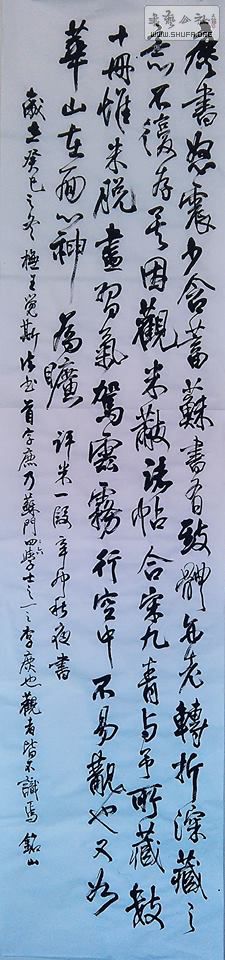 廌書怒震少含蓄蘇書有致體包老轉折深藏之
意不復存矣因觀米黻諸帖合宋九青與予所藏數
十冊惟米脫盡習氣駕雲霧行空中不易觀也又如
華山在面心神為曠
評米一段辛卯秋夜書
歲在癸巳之冬 王覺斯法書首字廌乃蘇門四六學士之一之李廌也觀者皆不識焉 銘山
書藝公社
WWW.SHUFA.ORG